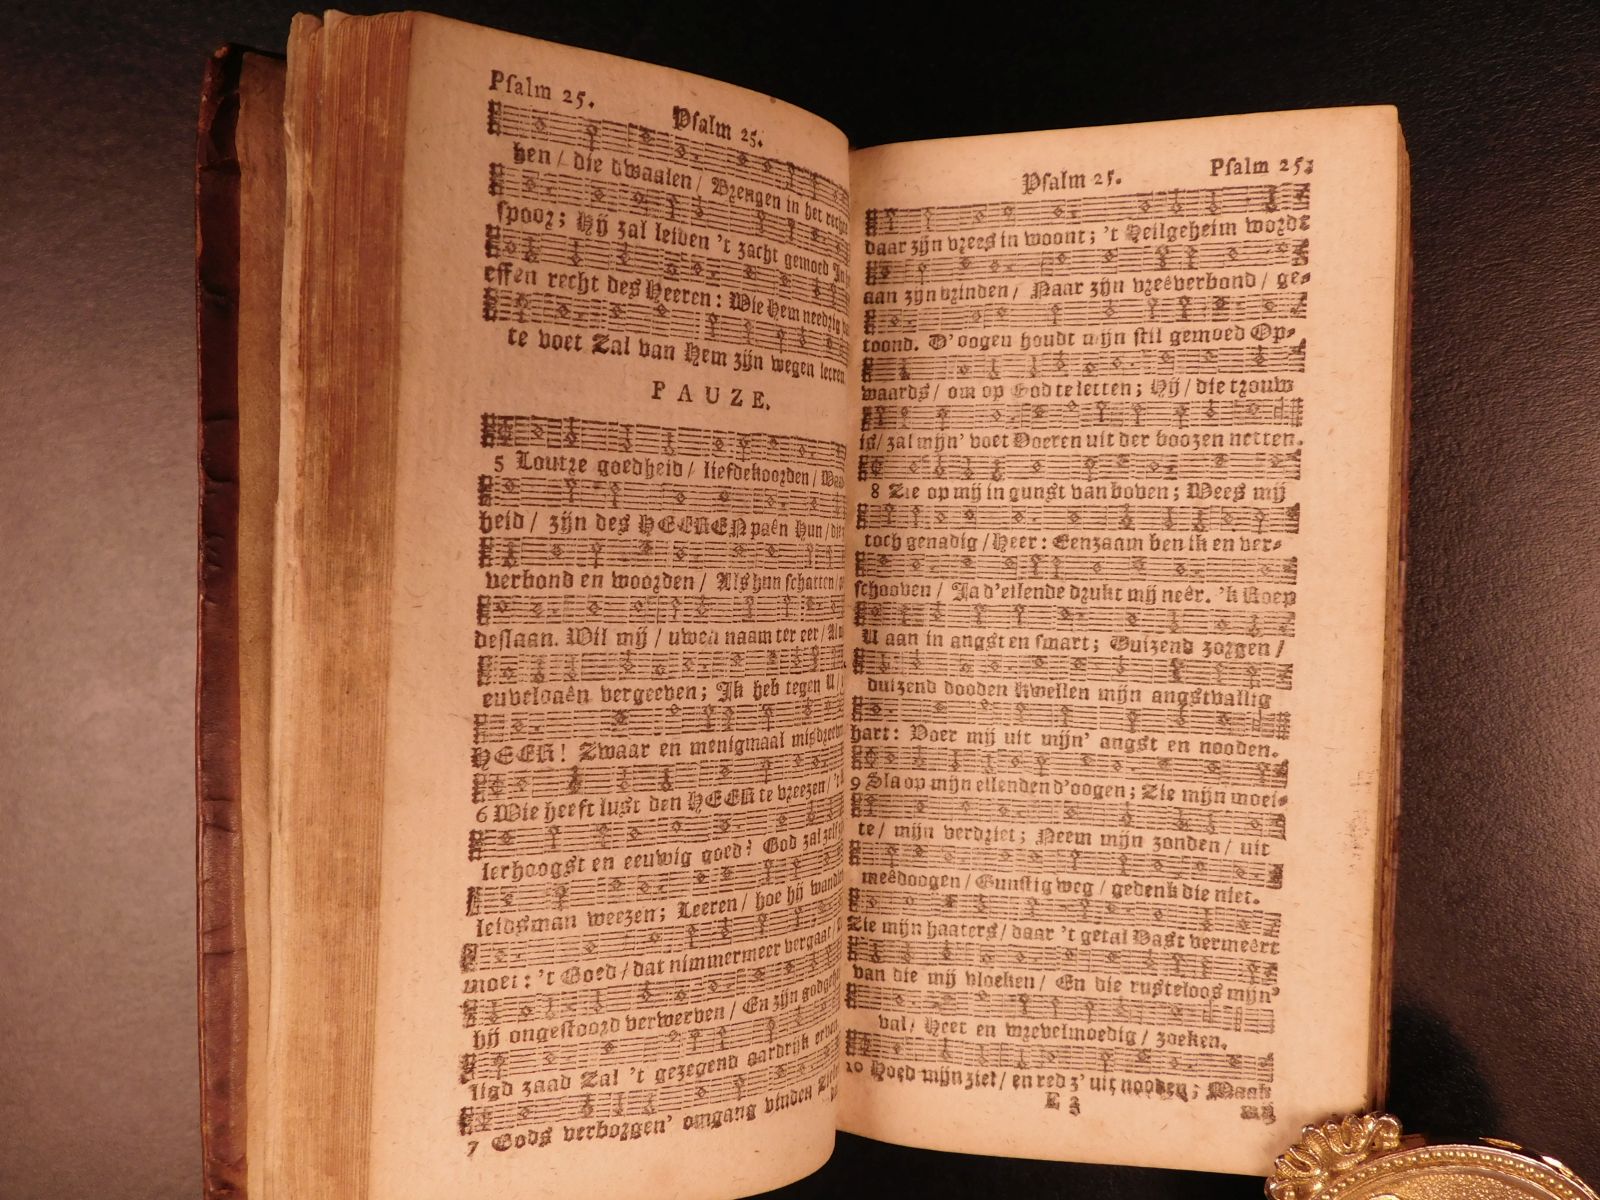 Psalm 25.
Psalm 25.
hen / die dwaalen / Brengen in het rechte
spoor; Hij zal leiden 't zacht gemoed In
effen recht des Heeren: Wie Hem needrig
te voet Zal van Hem zijn wegen leeren
PAUZE.
5 Loutre goedheid / liefdekoorden / Waar-
heid / zijn des HEEREN paên Hun / die
verbond en woorden / Als hun schatten /
deslaan. Wil mij / uwen naam ter eer /
euveldaên vergeeven; Ik heb tegen U /
HEER! Zwaar en menigmaal misdreeven
6 Wie heeft lust den HEER te vreezen / 't
lerhoogst en eeuwig goed? God zal zelf
leidsman weezen; Leeren / hoe hij wand'len
moet: 't Goed / dat nimmermeer vergaat /
hij ongestoord verwerven / En zijn godgehei-
ligd zaad Zal 't gezegend aardrijk erven
7 Gods verborgen' omgang vinden Zielen
Psalm 25.
Psalm 25.
daar zijn vrees in woont; 't Heilgeheim wordt
aan zijn vrinden / Naar zijn vreêverbond / ge-
toond. D'oogen houdt mijn stil gemoed Op-
waards / om op God te letten; Hij / die trouw
is / zal mijn' voet Voeren uit der boozen netten.
8 Zie op mij in gunst van boven; Wees mij
toch genadig / Heer: Eenzaam ben ik en ver-
schooven / Ja d'ellende drukt mij neêr. 'k Roep
U aan in angst en smart; Duizend zorgen /
duizend dooden kwellen mijn angstvallig
hart: Voer mij uit mijn' angst en nooden.
9 Sla op mijn ellenden d'oogen; Zie mijn moei-
te / mijn verdriet; Neem mijn zonden / uit
meêdoogen / Gunstig weg / gedenk die niet.
Zie mijn haaters / daar 't getal Vast vermeêrt
van die mij vloeken / En die rusteloos mijn'
val / Heet en wrevelmoedig / zoeken.
10 Hoed mijn ziel / en red z' uit nooden; Maak
E 3